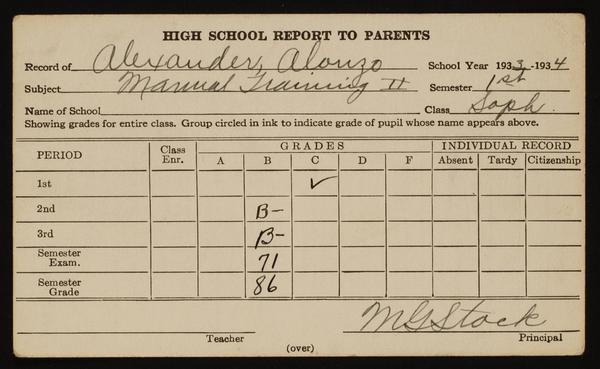 HIGH SCHOOL REPORT TO PARENTS
Record of Alexander, Alonzo School Year 1933-1934
Subject Manual Training II Semester 1st
Name of School Class Soph.
Showing grades for entire class. Group circled in ink to indicate grade of pupil whose name appears above.
PERIOD Class Enr. GRADES INDIVIDUAL RECORD
A B C D F Absent Tardy Citizenship
1st ✓
2nd B-
3rd B-
Semester Exam. 71
Semester Grade 86
MGStock
Teacher Principal
(over)